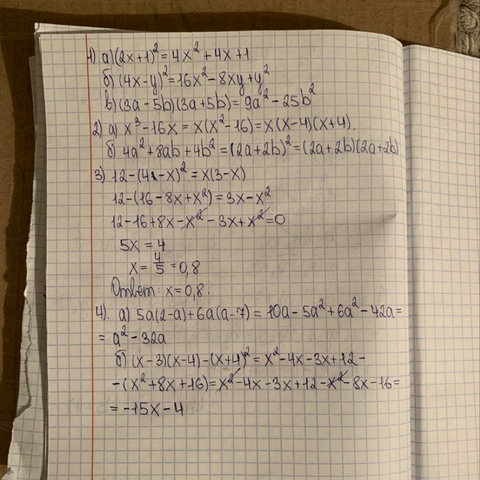 1) а) (2x+1)² = 4x² + 4x + 1
б) (4x-y)² = 16x² - 8xy + y²
в) (3a-5b)(3a+5b) = 9a² - 25b²
2) а) x³ - 16x = x(x² - 16) = x(x-4)(x+4)
б) 4a² + 8ab + 4b² = (2a+2b)² = (2a+2b)(2a+2b)
3) 12 - (4-x)² = x(3-x)
12 - (16 - 8x + x²) = 3x - x²
12 - 16 + 8x - x² - 3x + x² = 0
5x = 4
x = 4/5 = 0,8
Ответ: x = 0,8.
4). а) 5a(2-a) + 6a(a-7) = 10a - 5a² + 6a² - 42a =
= a² - 32a
б) (x-3)(x-4) - (x+4)² = x² - 4x - 3x + 12 -
- (x² + 8x + 16) = x² - 4x - 3x + 12 - x² - 8x - 16 =
= -15x - 4